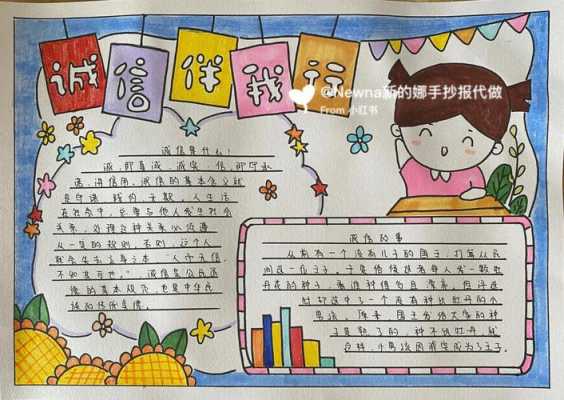 诚信伴我行
@Newna新的娜手抄报代做
From 小红书
诚信是什么!
诚,即真诚、诚实;信,即守承
诺、讲信用。诚信的基本含义就
是守诺、践约、无欺。人生活
在社会中,总要与他人发生社会
关系。处理这种关系必须遵
从一定的规则,否则,这个人
就会失去立身之本。"人而无信,
不知其可也。"诚信是公民道
德的基本规范,也是中华民
族的传统美德。
诚信故事
从前有一个没有儿子的国王,打算从民
间选一位王子,于是他给孩子每人发一颗牡
丹花的种子,看谁种得多且漂亮。但评选
时却选中了一个没有种出牡丹的小
男孩。原来,国王发给大家的种
子是熟了的,种不出牡丹,就
这样,小男孩因诚实成为了王子。